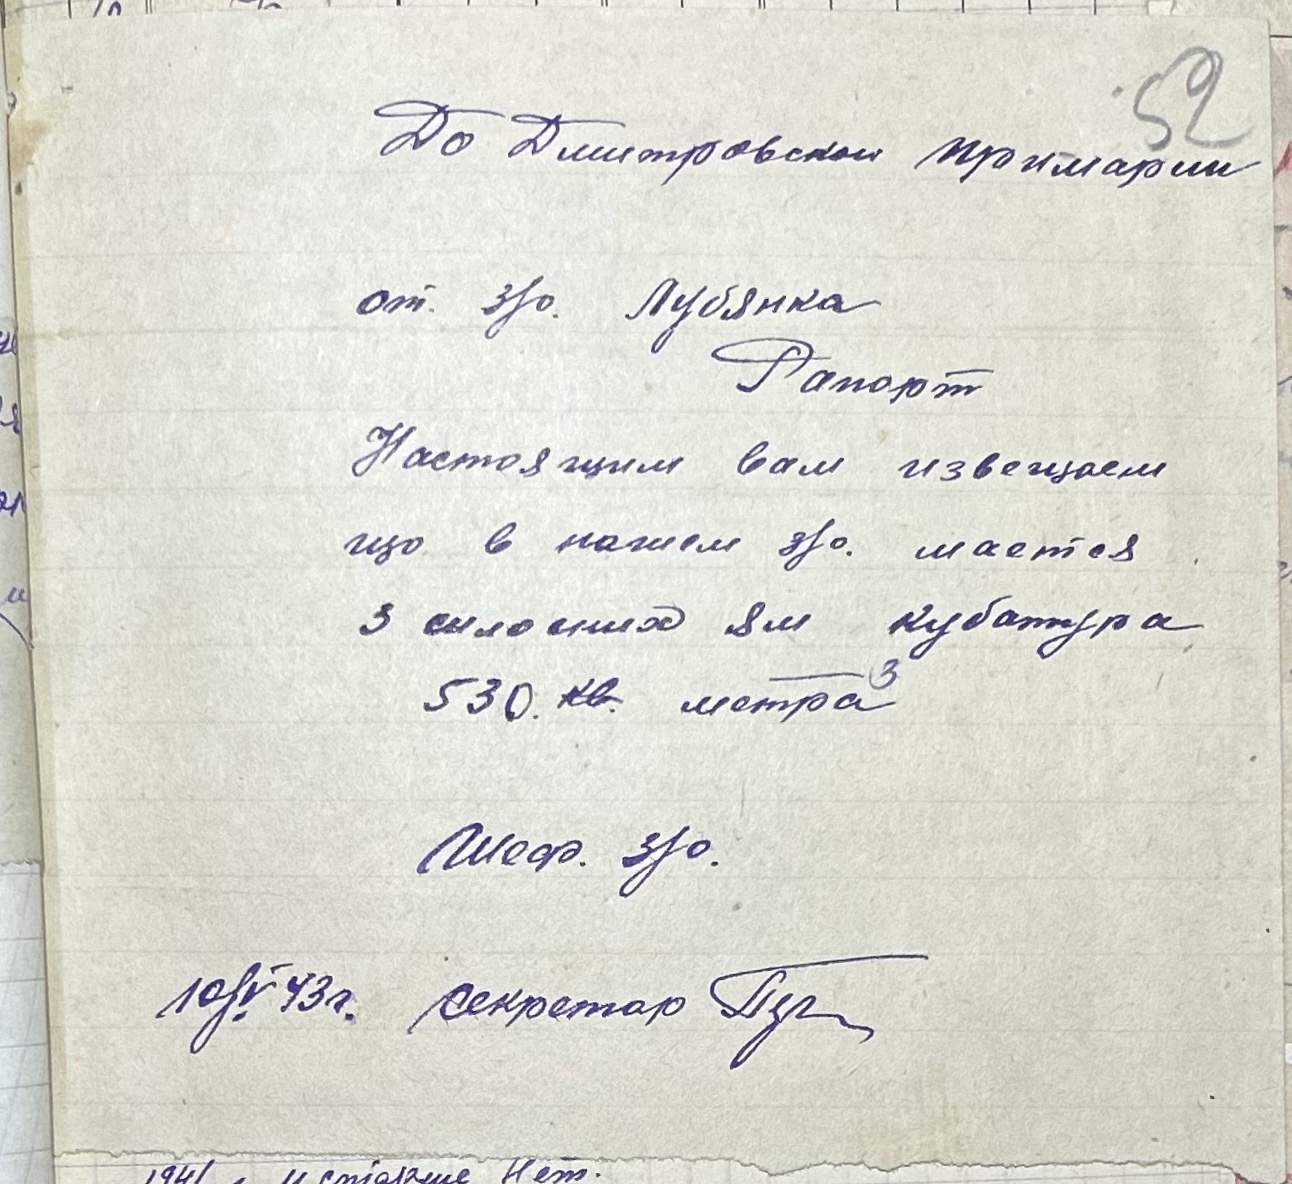 52
До Дмитровской примарии
от. з/о. Лубянка
Рапорт
Настоящим вам извещаем
що в нашем з/о. мается
3 силосних ям кубатура
530. кв. метра³
Шеф. з/о.
10/V 43 г. секретар
1941 г. Нет.